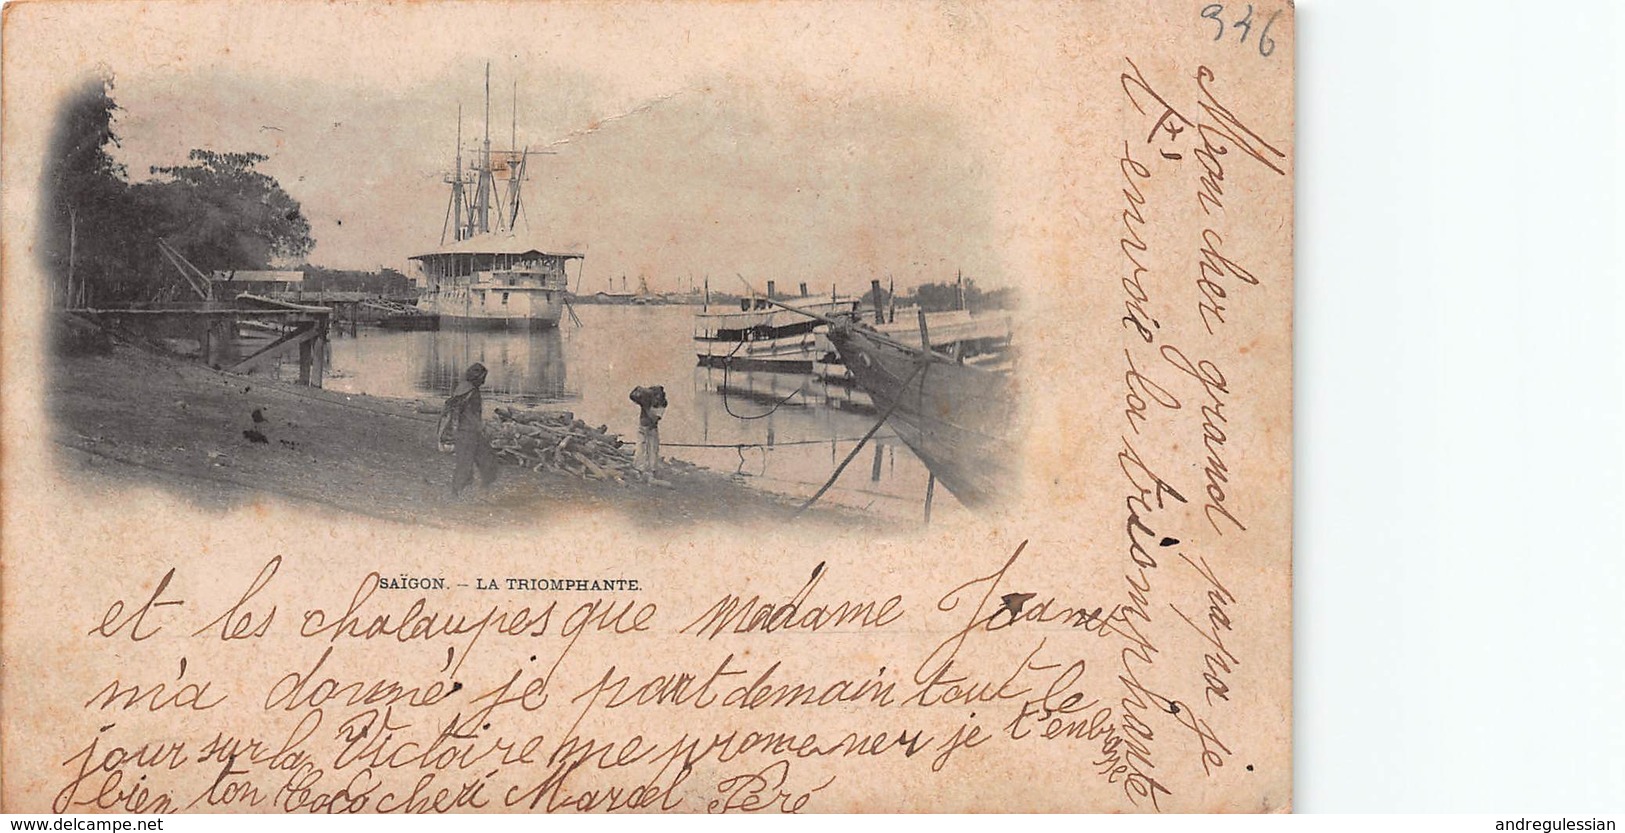 946
Mon cher grand papa je
t'envoie la triomphante
SAÏGON. — LA TRIOMPHANTE.
et les chalaupes que madame Jaanet
m'a donné je part demain tout le
jour sur la Victoire me promener je t'enbrasse
bien ton Cocó cheri Marcel Péré
www.delcampe.net
andregulessian